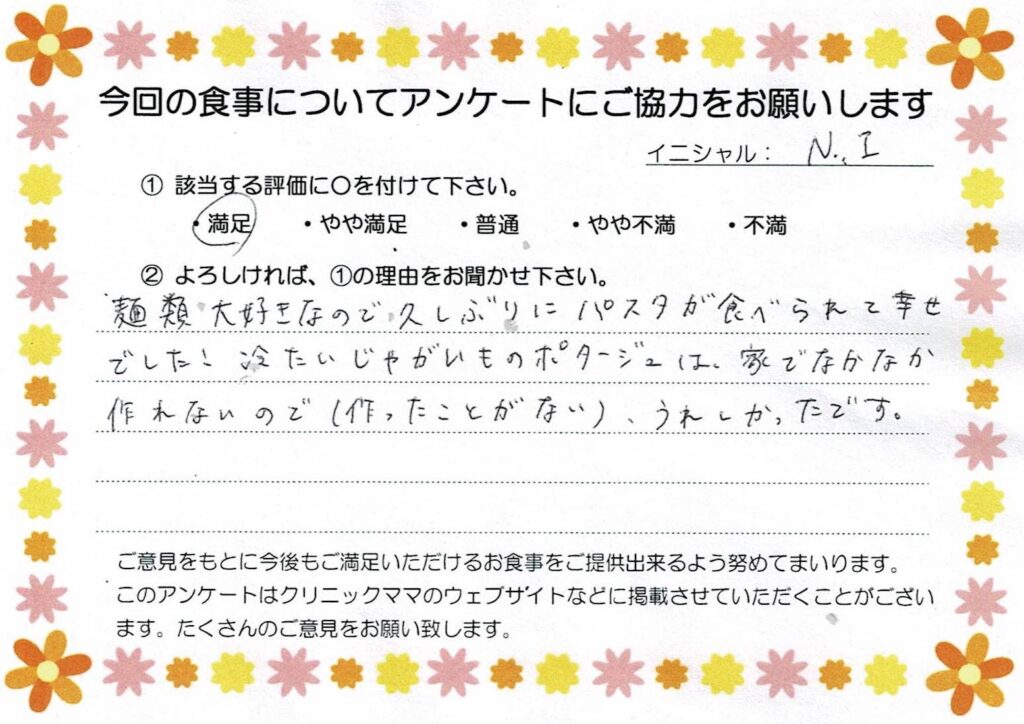 今回の食事についてアンケートにご協力をお願いします
イニシャル： N.I
① 該当する評価に〇を付けて下さい。
・満足 ・やや満足 ・普通 ・やや不満 ・不満
② よろしければ、①の理由をお聞かせ下さい。
麺類大好きなので久しぶりにパスタが食べられて幸せ
でした！冷たいじゃがいものポタージュは、家でなかなか
作れないので（作ったことがない）、うれしかったです。
ご意見をもとに今後もご満足いただけるお食事をご提供出来るよう努めてまいります。
このアンケートはクリニックママのウェブサイトなどに掲載させていただくことがござい
ます。たくさんのご意見をお願い致します。